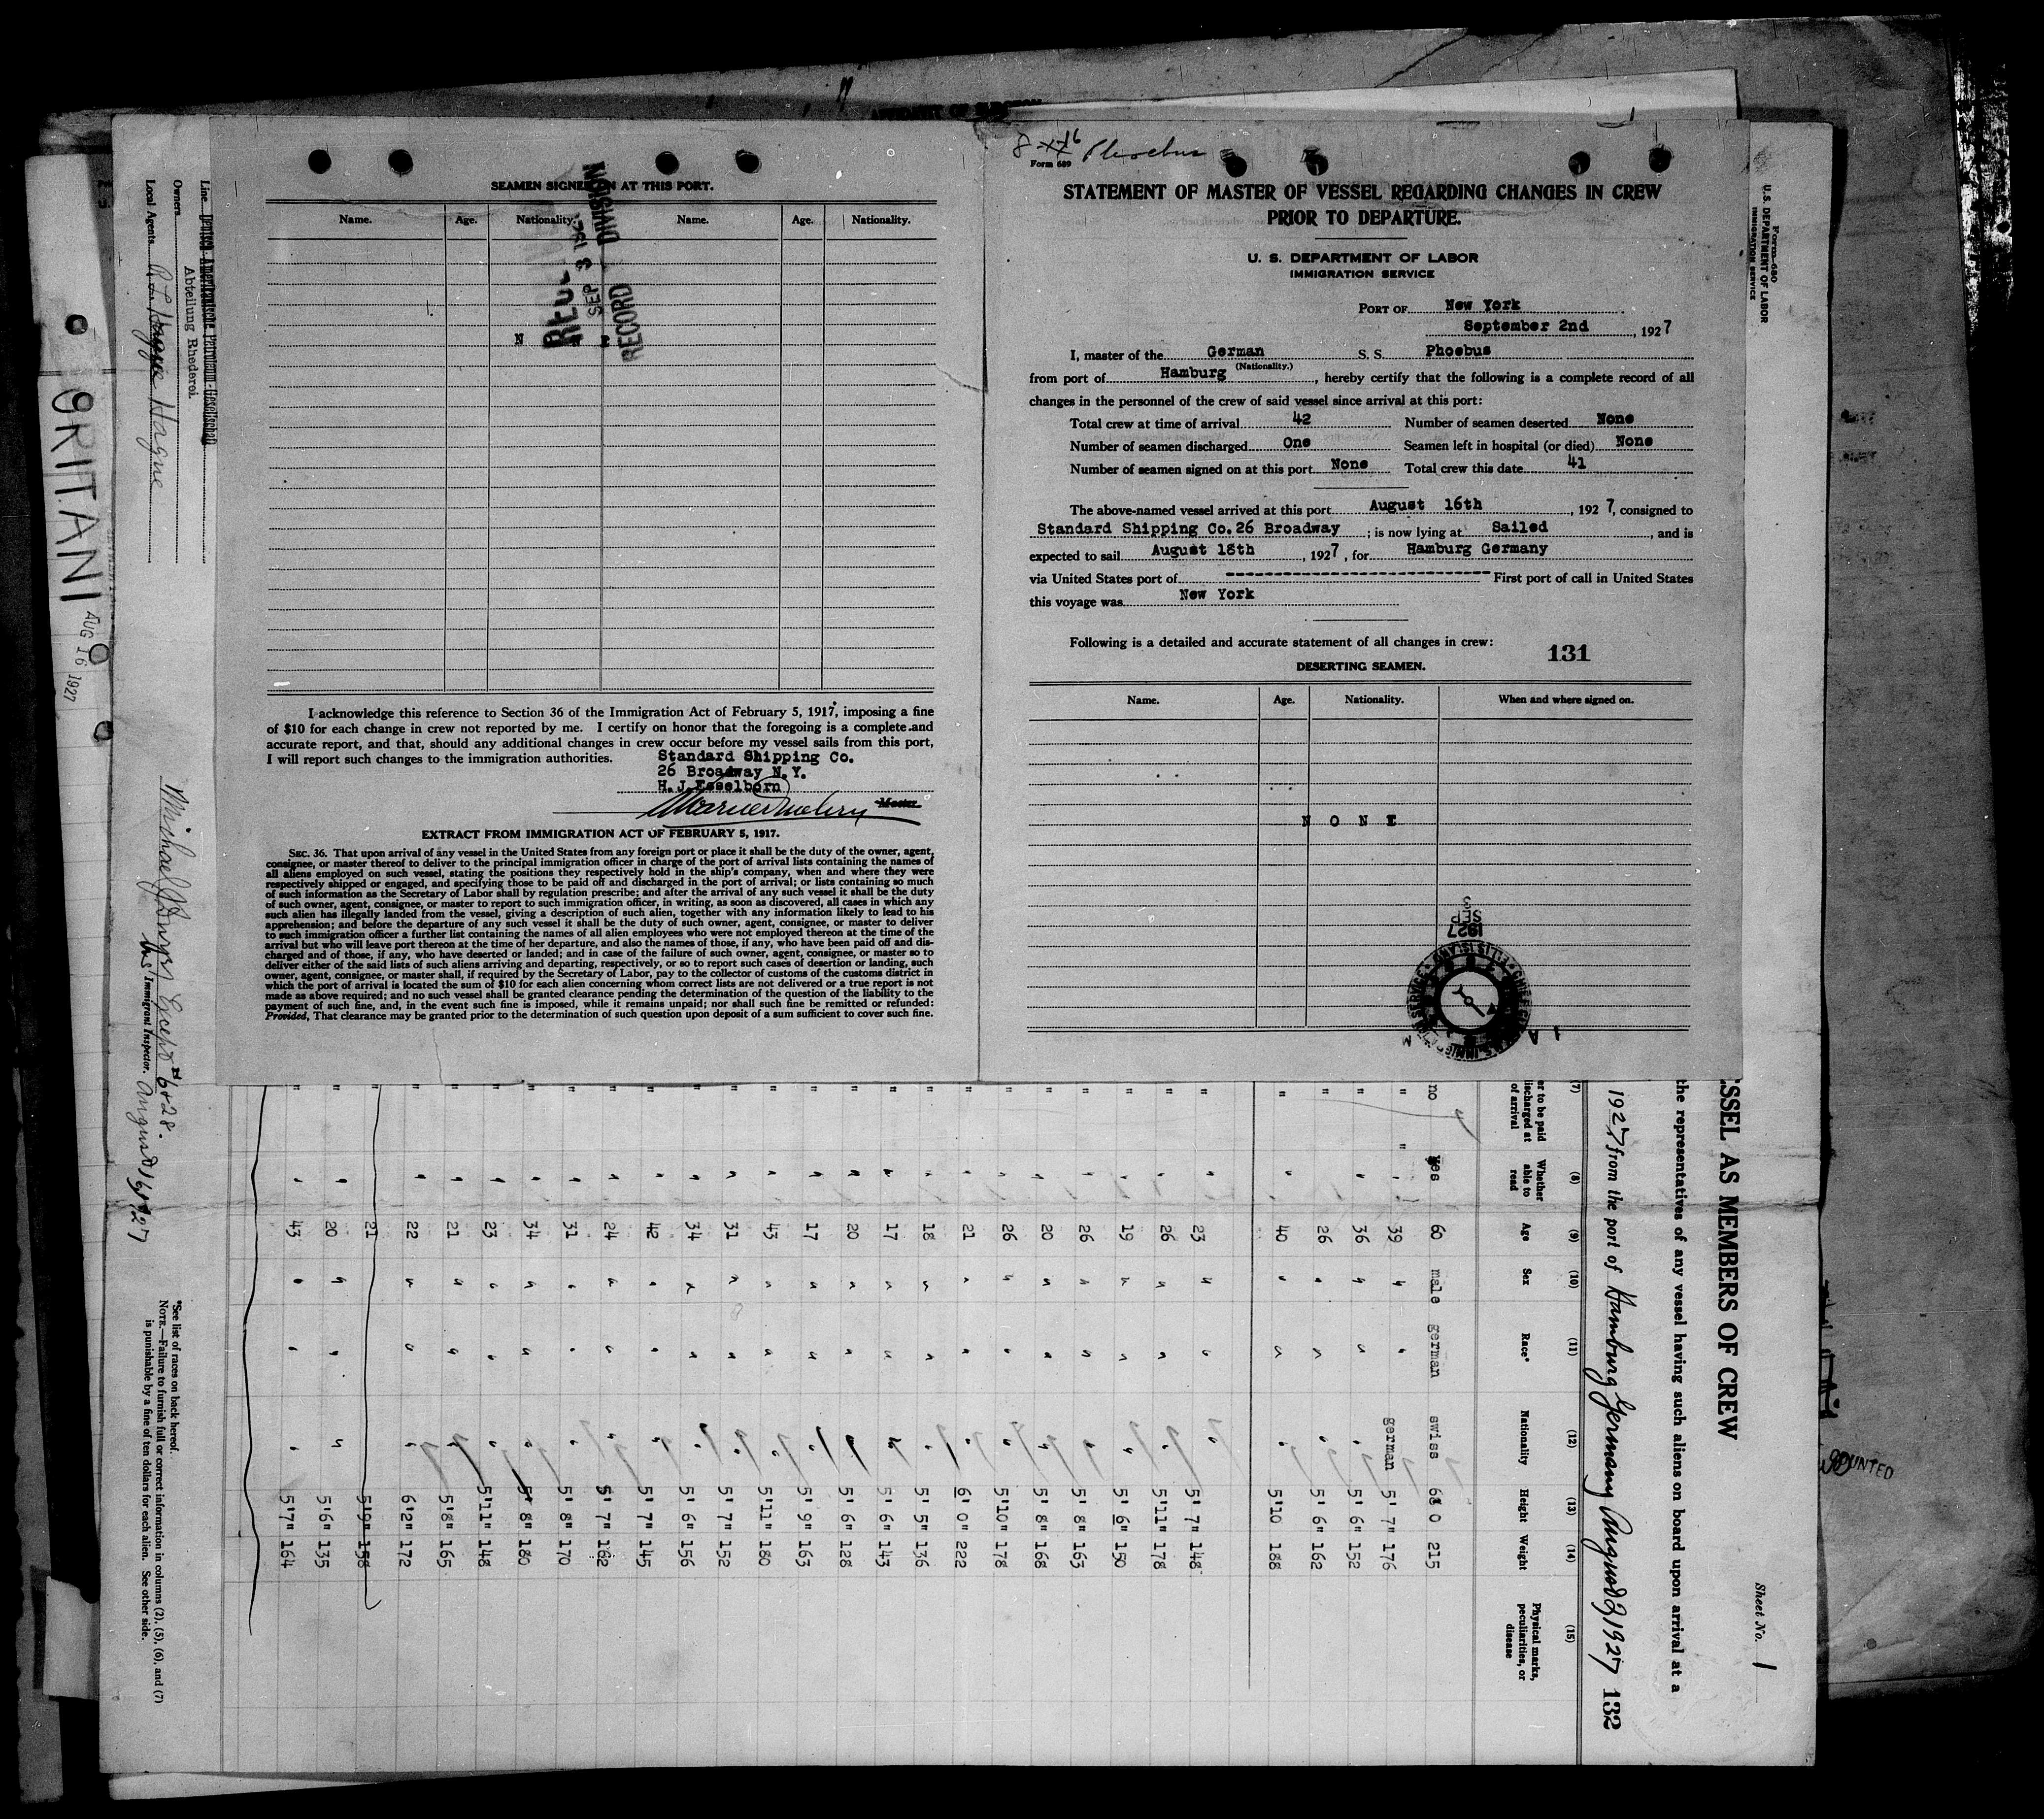 8-16 Phoebus
Form 689
STATEMENT OF MASTER OF VESSEL REGARDING CHANGES IN CREW
PRIOR TO DEPARTURE.
U. S. DEPARTMENT OF LABOR
IMMIGRATION SERVICE
PORT OF New York
September 2nd, 1927
I, master of the German S. S. Phoebus
(Nationality.)
from port of Hamburg, hereby certify that the following is a complete record of all
changes in the personnel of the crew of said vessel since arrival at this port:
Total crew at time of arrival 42 Number of seamen deserted None
Number of seamen discharged One Seamen left in hospital (or died) None
Number of seamen signed on at this port None Total crew this date 41
The above-named vessel arrived at this port August 16th, 1927, consigned to
Standard Shipping Co. 26 Broadway; is now lying at Sailed, and is
expected to sail August 18th, 1927, for Hamburg Germany
via United States port of ---------- First port of call in United States
this voyage was New York
Following is a detailed and accurate statement of all changes in crew:
131
DESERTING SEAMEN.
Name. Age. Nationality. When and where signed on.
N O N E
1927
SEP
3
SEAMEN SIGNED ON AT THIS PORT.
Name. Age. Nationality. Name. Age. Nationality.
SEP 3 192
RECORD DIVISION
I acknowledge this reference to Section 36 of the Immigration Act of February 5, 1917, imposing a fine
of $10 for each change in crew not reported by me. I certify on honor that the foregoing is a complete and
accurate report, and that, should any additional changes in crew occur before my vessel sails from this port,
I will report such changes to the immigration authorities.
Standard Shipping Co.
26 Broadway N.Y.
H.J.Esselborn
Master.
EXTRACT FROM IMMIGRATION ACT OF FEBRUARY 5, 1917.
SEC. 36. That upon arrival of any vessel in the United States from any foreign port or place it shall be the duty of the owner, agent,
consignee, or master thereof to deliver to the principal immigration officer in charge of the port of arrival lists containing the names of
all aliens employed on such vessel, stating the positions they respectively hold in the ship's company, when and where they were
respectively shipped or engaged, and specifying those to be paid off and discharged in the port of arrival; or lists containing so much
of such information as the Secretary of Labor shall by regulation prescribe; and after the arrival of any such vessel it shall be the duty
of such owner, agent, consignee, or master to report to such immigration officer, in writing, as soon as discovered, all cases in which any
such alien has illegally landed from the vessel, giving a description of such alien, together with any information likely to lead to his
apprehension; and before the departure of any such vessel it shall be the duty of such owner, agent, consignee, or master to deliver
to such immigration officer a further list containing the names of all alien employees who were not employed thereon at the time of the
arrival but who will leave port thereon at the time of her departure, and also the names of those, if any, who have been paid off and dis-
charged and of those, if any, who have deserted or landed; and in case of the failure of such owner, agent, consignee, or master so to
deliver either of the said lists of such aliens arriving and departing, respectively, or so to report such cases of desertion or landing, such
owner, agent, consignee, or master shall, if required by the Secretary of Labor, pay to the collector of customs of the customs district in
which the port of arrival is located the sum of $10 for each alien concerning whom correct lists are not delivered or a true report is not
made as above required; and no such vessel shall be granted clearance pending the determination of the question of the liability to the
payment of such fine, and, in the event such fine is imposed, while it remains unpaid; nor shall such fine be remitted or refunded:
Provided, That clearance may be granted prior to the determination of such question upon deposit of a sum sufficient to cover such fine.
Form 680
U. S. DEPARTMENT OF LABOR
IMMIGRATION SERVICE
Sheet No. 1
SSEL AS MEMBERS OF CREW
the representatives of any vessel having such aliens on board upon arrival at a
1927 from the port of Hamburg Germany August 3 1927 132
(7) (8) (9) (10) (11) (12) (13) (14) (15)
er to be paid
ischarged at
of arrival
Whether
able to
read
Age
Sex
Race*
Nationality
Height
Weight
Physical marks,
peculiarities, or
disease
no yes 60 male german swiss 6 0 215
" " 39 " " german 5' 7" 176
" " 36 " " " 5' 6" 152
" " 26 " " " 5' 6" 162
" " 40 " " " 5'10 188
" 23 " " " 5' 7" 148
" 26 " " " 5'11" 178
" 19 " " " 5' 6" 150
" 26 " " " 5' 8" 163
" 20 " " " 5' 8" 168
" 26 " " " 5'10" 178
" 21 " " " 6' 0" 222
" 18 " " " 5' 5" 136
" 17 " " " 5' 6" 143
" 20 " " " 5' 6" 128
" 17 " " " 5' 9" 163
" 43 " " " 5'11" 180
" 31 " " " 5' 7" 152
" 34 " " " 5' 6" 156
" 42 " " " 5' 7" 145
" 24 " " " 5' 7" 162
" 31 " " " 5' 8" 170
" 34 " " " 5' 8" 180
" 23 " " " 5'11" 148
" 21 " " " 5'8" 165
" 22 " " " 6'2" 172
" 21 5'9" 158
" 20 " " " 5'6" 135
" 43 " " " 5'7" 164
Line Deutsch-Amerikanische Petroleum-Gesellschaft
Abteilung Rhederei.
Owners
Local Agents R. L. Hague
Except # 6 & 28.
Immigrant Inspector. August 16, 1927
*See list of races on back hereof.
NOTE.—Failure to furnish full or correct information in columns (2), (5), (6), and (7)
is punishable by a fine of ten dollars for each alien. See other side.
BRITANI
AUG 16 1927